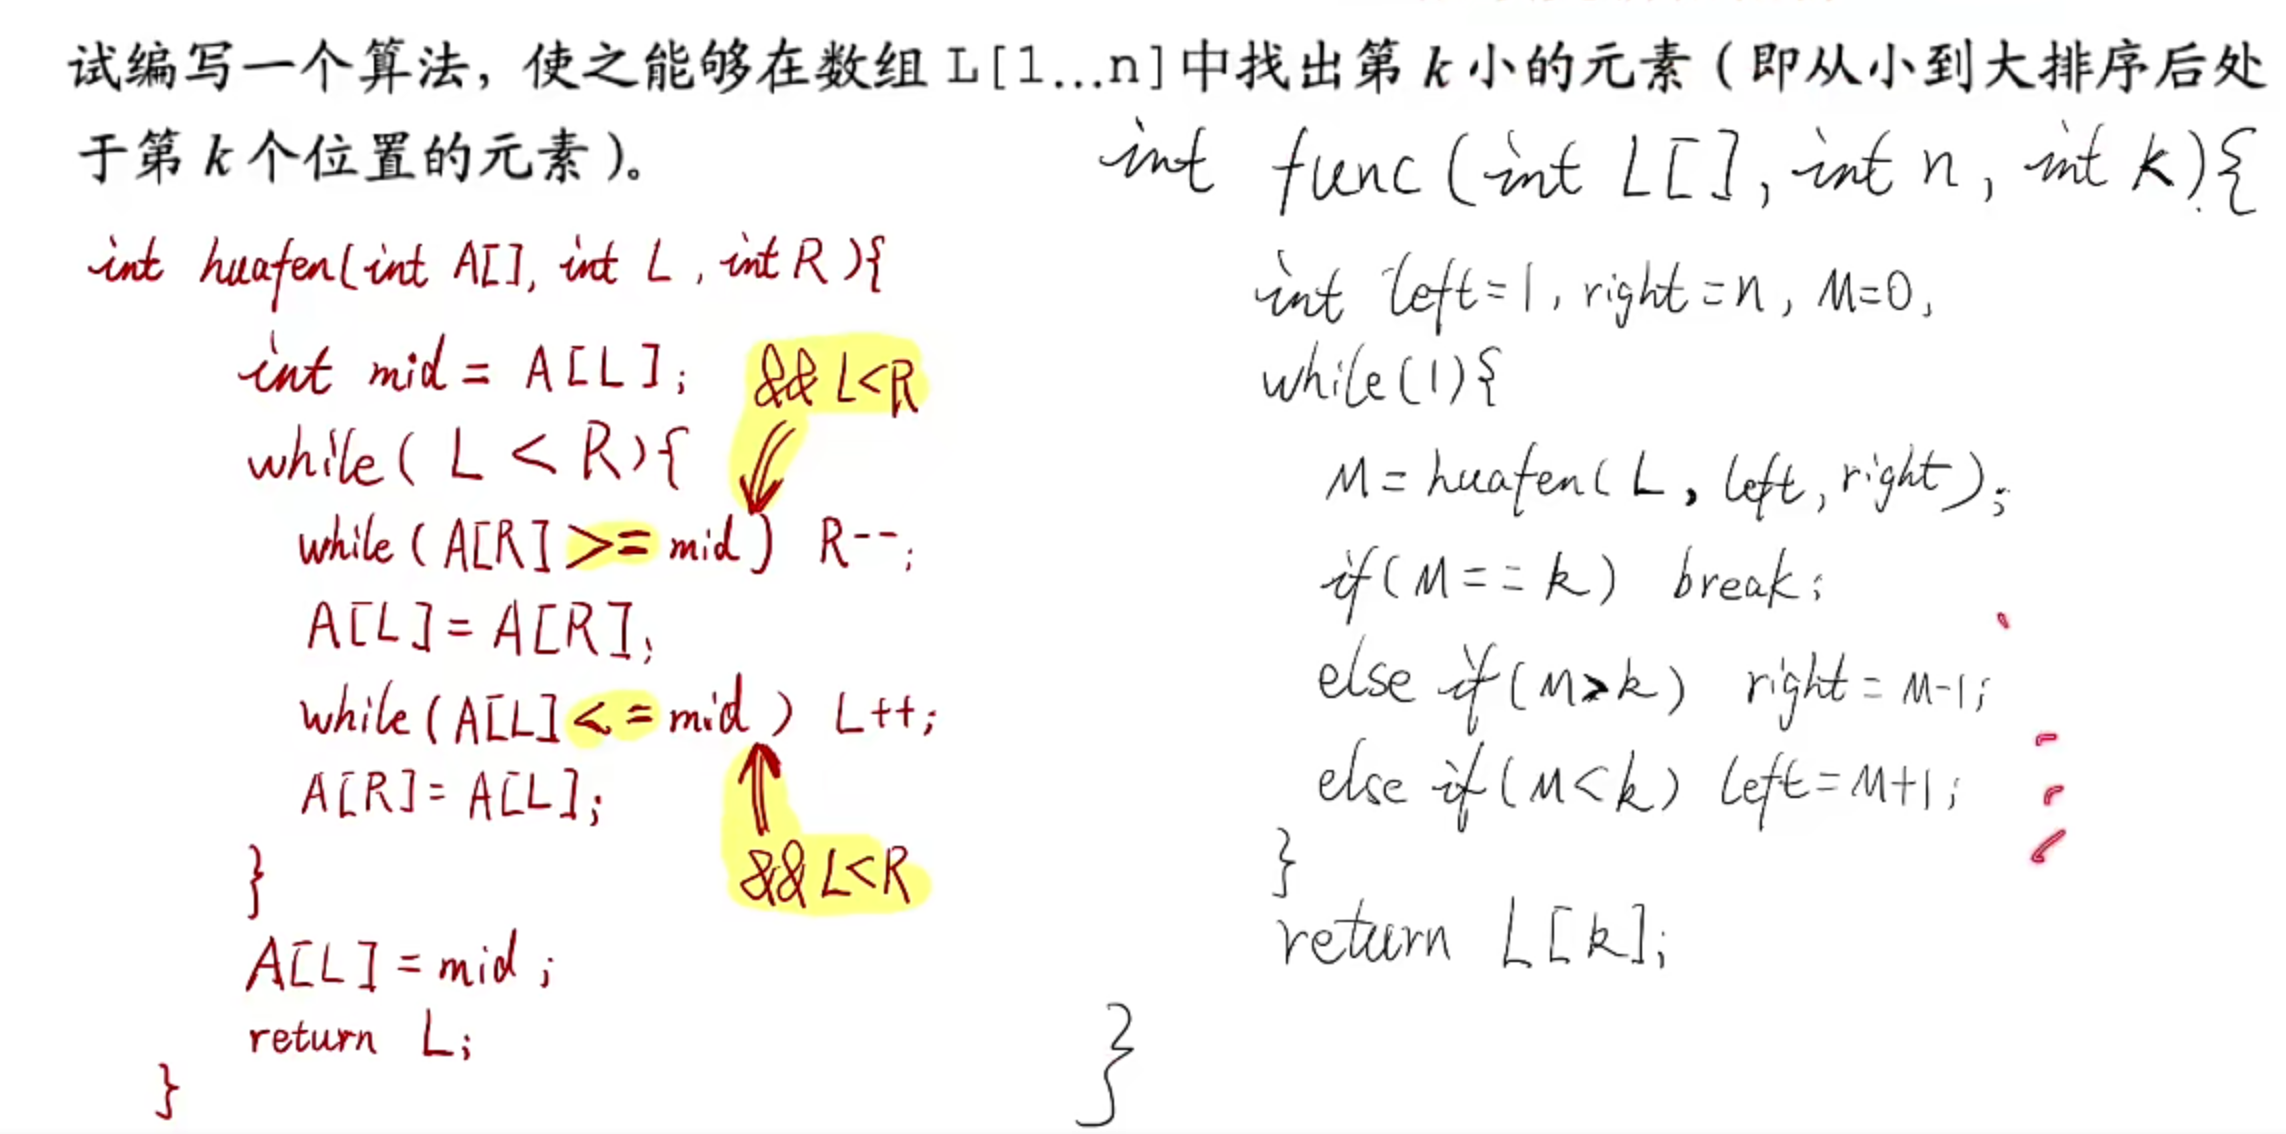 试编写一个算法，使之能够在数组 L[1...n]中找出第 k 小的元素（即从小到大排序后处
于第 k 个位置的元素）。
int huafen(int A[], int L, int R){
int mid = A[L];
&& L<R
while( L < R){
while( A[R] >= mid) R--;
A[L]= A[R];
while(A[L] <= mid ) L++;
A[R]= A[L];
&& L<R
}
A[L] = mid ;
return L;
}
int func(int L[], int n, int k){
int left=1, right=n, M=0,
while(1){
M=huafen( L, left, right);
if(M==k) break;
else if(M>k) right=M-1;
else if(M<k) left=M+1;
}
return L[k];
}